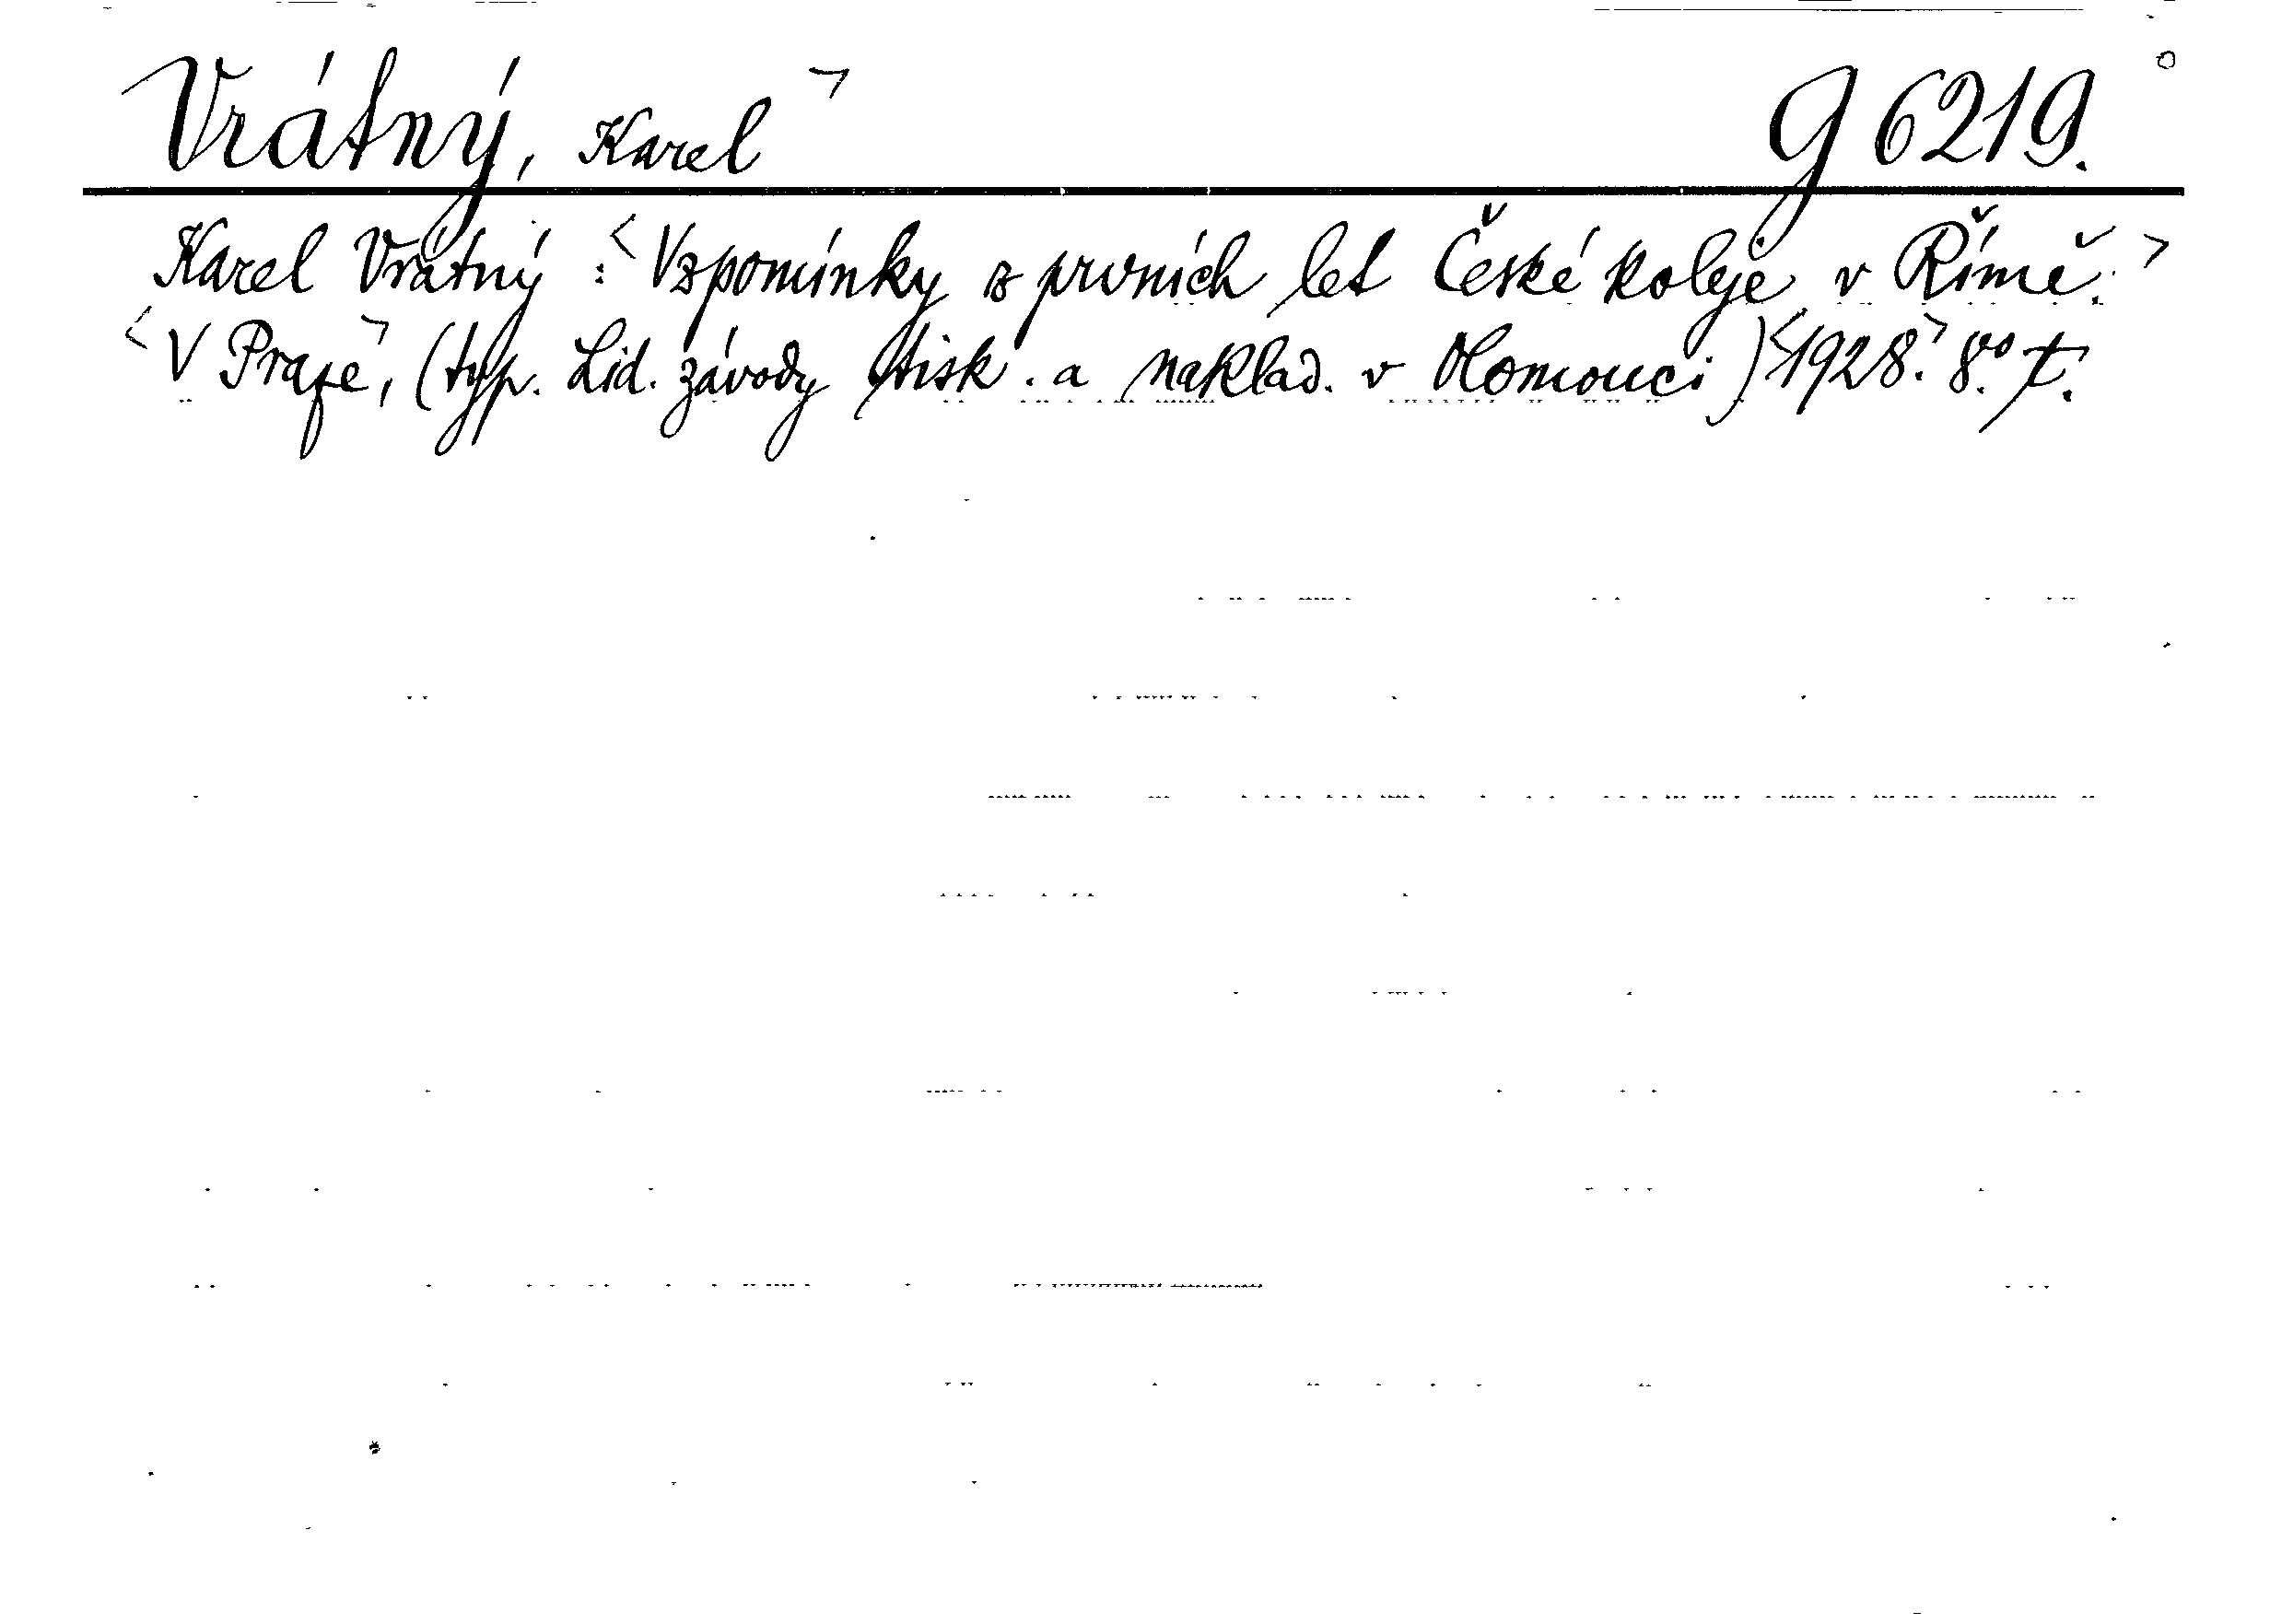 Vrátný, Karel G 6219.
Karel Vrátný: Vzpomínky z prvních let České koleje v Římě.
V Praze, (typ. Lid. závody tisk. a naklad. v Olomouci) 1928. 8.º